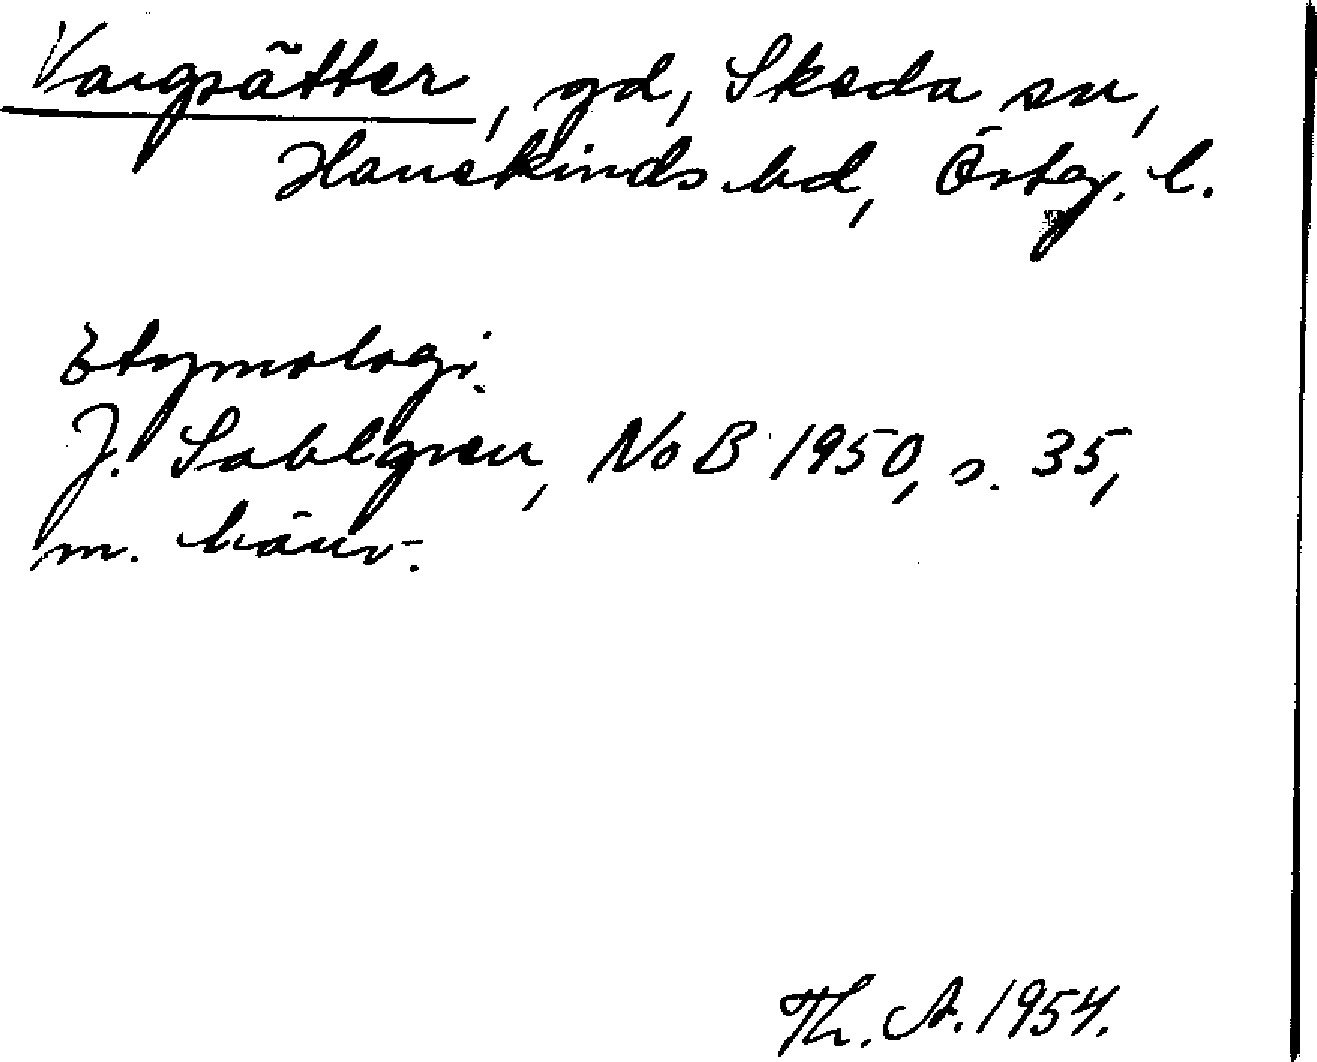 Vargsätter, gd, Skeda sn,
Hanekinds hd, Östg. l.
Etymologi.
J. Sahlgren, NoB 1950, s. 35,
m. hänv.
Th. A. 1954.